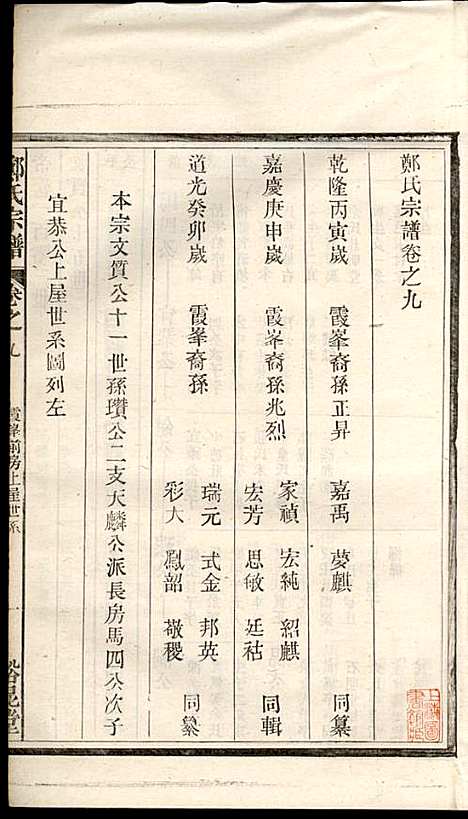 鄭氏宗譜卷之九
乾隆丙寅歲 霞峯裔孫正昇 嘉禹 夢麒 同纂
嘉慶庚申歲 霞峯裔孫兆烈 家禎 宏純 紹麒 宏芳 思敏 廷祜 同輯
道光癸卯歲 霞峯裔孫 瑞元 式金 邦英 彩大 鳳韶 敬稷 同纂
本宗文質公十一世孫瓚公二支天麟公派長房馬四公次子
宜恭公上屋世系圖列左
鄭氏宗譜 卷之九 霞峯前房上屋世系 一
上海圖書館藏